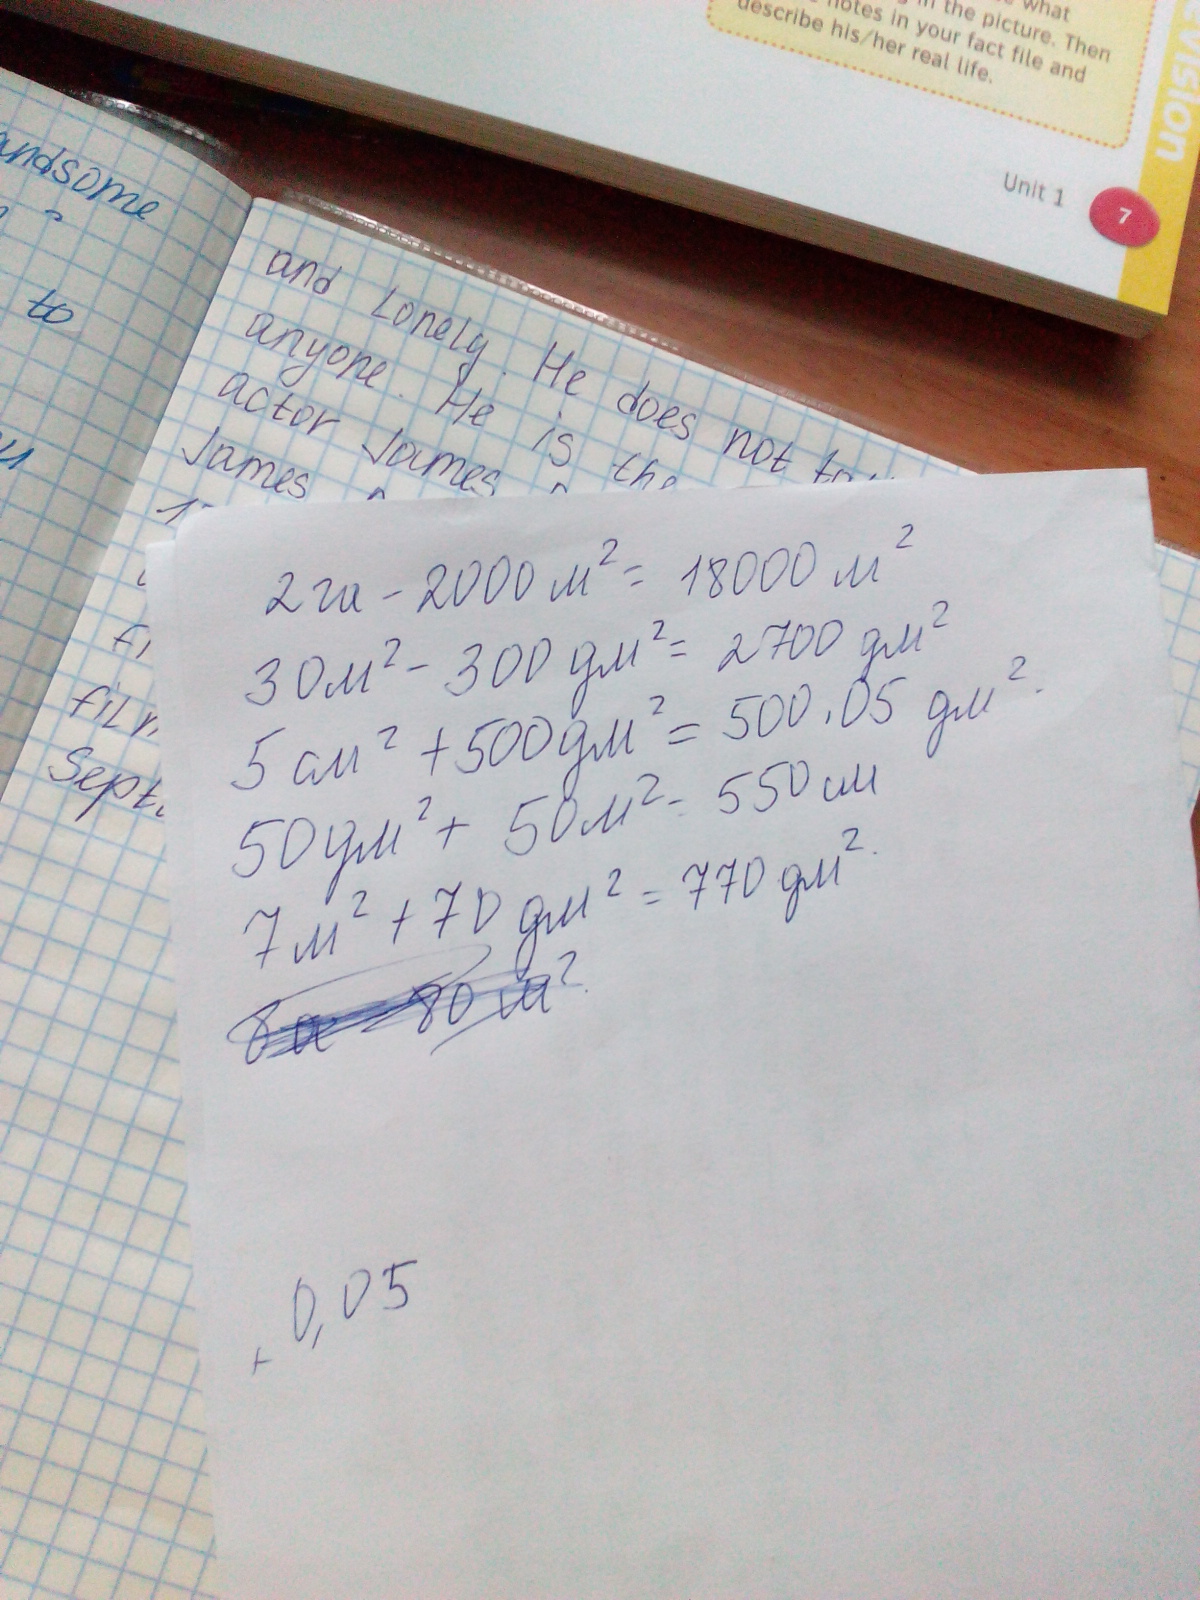 what
in the picture. Then
notes in your fact file and
describe his/her real life.
vision
Unit 1
7
andsome
to
and Lonely. He does not
anyone. He is the
actor James
James
film
Sept
2 га - 2000 м² = 18000 м²
30 м² - 300 дм² = 2700 дм²
5 см² + 500 дм² = 500.05 дм².
50 дм² + 50 м² = 550 см
7 м² + 70 дм² = 770 дм².
8а - 80 м².
+ 0,05